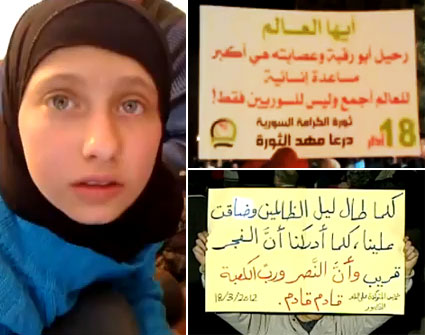 أيها العالم
رحيل أبو رقبة وعصابته هي أكبر
مساعدة إنسانية
للعالم أجمع وليس للسوريين فقط!
ثورة الكرامة السورية
درعا مهد الثورة
18 آذار
كلما طال ليل الظالمين وضاقت
علينا، كلما أدركنا أنَّ الفجر
قريب وأنَّ النَّصر وربّ الكعبة
قادم قادم.
18/3/2012